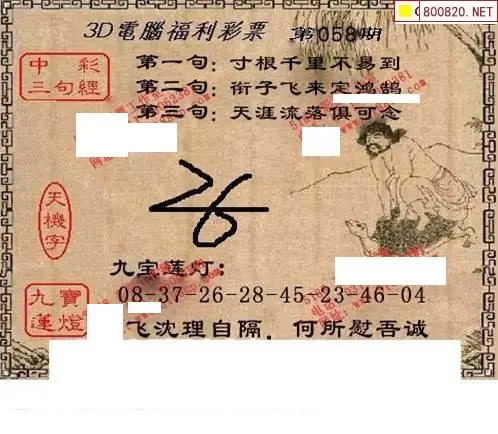 800820.NET
3D電腦福利彩票 第058期
中彩
三句經
第一句：寸根千里不易到
第二句：銜子飞来定鸿鹄
第三句：天涯流落俱可念
天機字
26
九宝莲灯：
九寶
蓮燈
08-37-26-28-45-23-46-04
飞沈理自隔，何所慰吾诚